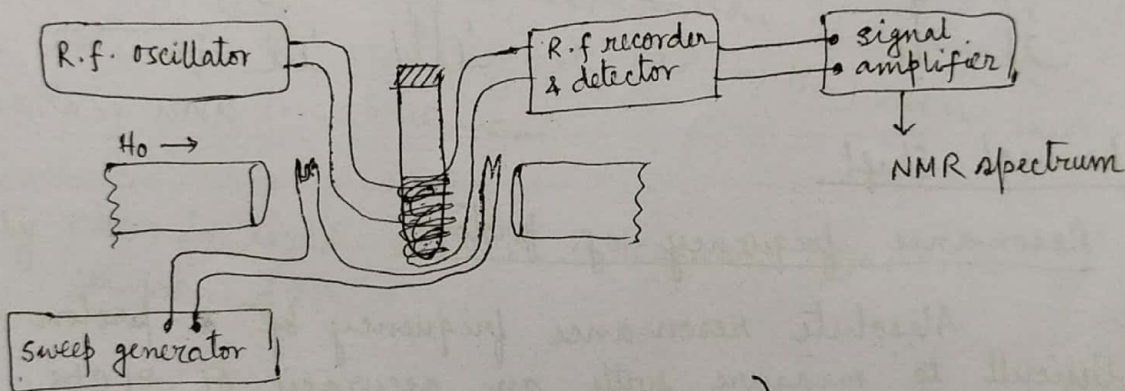 R.f. oscillator
R.f recorder
& detector
signal
amplifier
H₀ →
NMR spectrum
sweep generator